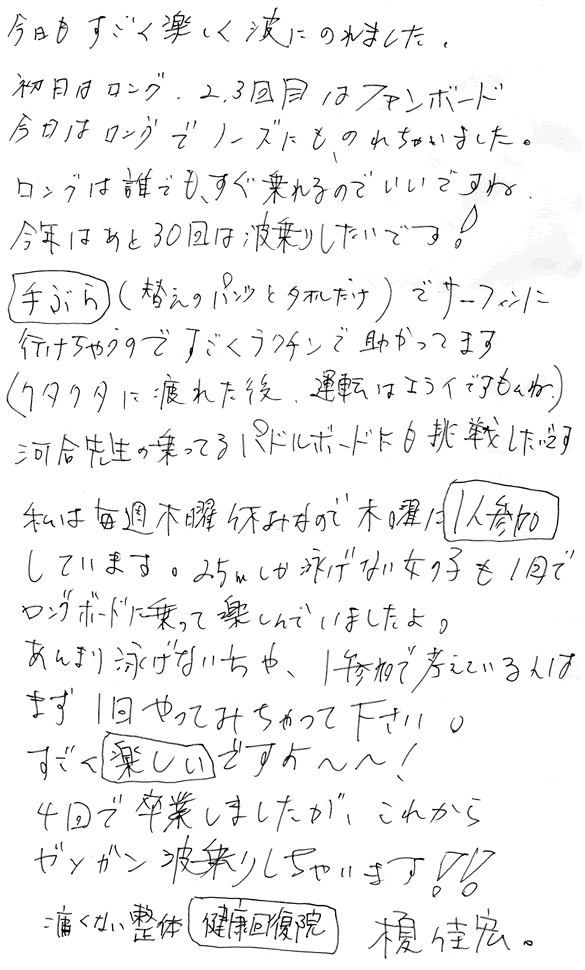 今日もすごく楽しく波にのれました.
初日はロング、2,3回目はファンボード
今日はロングでノーズにも、のれちゃいました。
ロングは誰でも、すぐ乗れるのでいいですね.
今年はあと30回は波乗りしたいです!
手ぶら(替えのパンツとタオルだけ)でサーフィンに
行けちゃうのですごくラクチンで助かってます
(クタクタに疲れた後、運転はエライですもんね)
河合先生の乗ってるパドルボードにも挑戦したいです
私は毎週木曜休みなので木曜に1人参加
しています。25mしか泳げない女の子も1回で
ロングボードに乗って楽しんでいましたよ。
あんまり泳げないちや、1人参加で考えている人は
まず1回やってみちゃって下さい。
すごく楽しいですよ〜〜!
4回で卒業しましたが、これから
ガンガン波乗りしちゃいます!!
痛くない整体 健康回復院 榎佳宏。